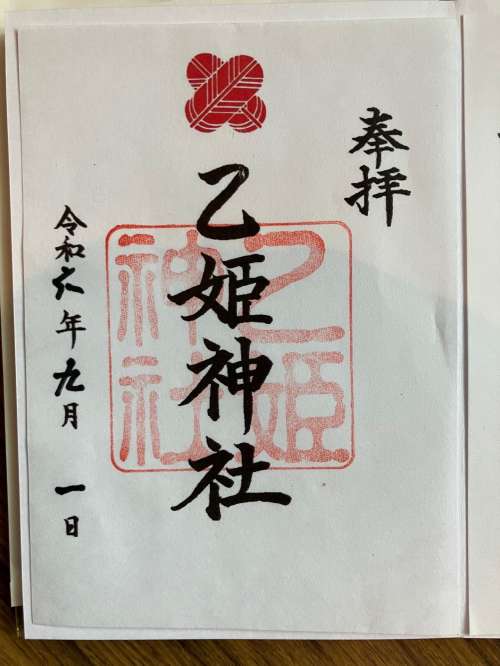 奉拝
乙姫神社
乙姫
神社
令和六年九月 一日